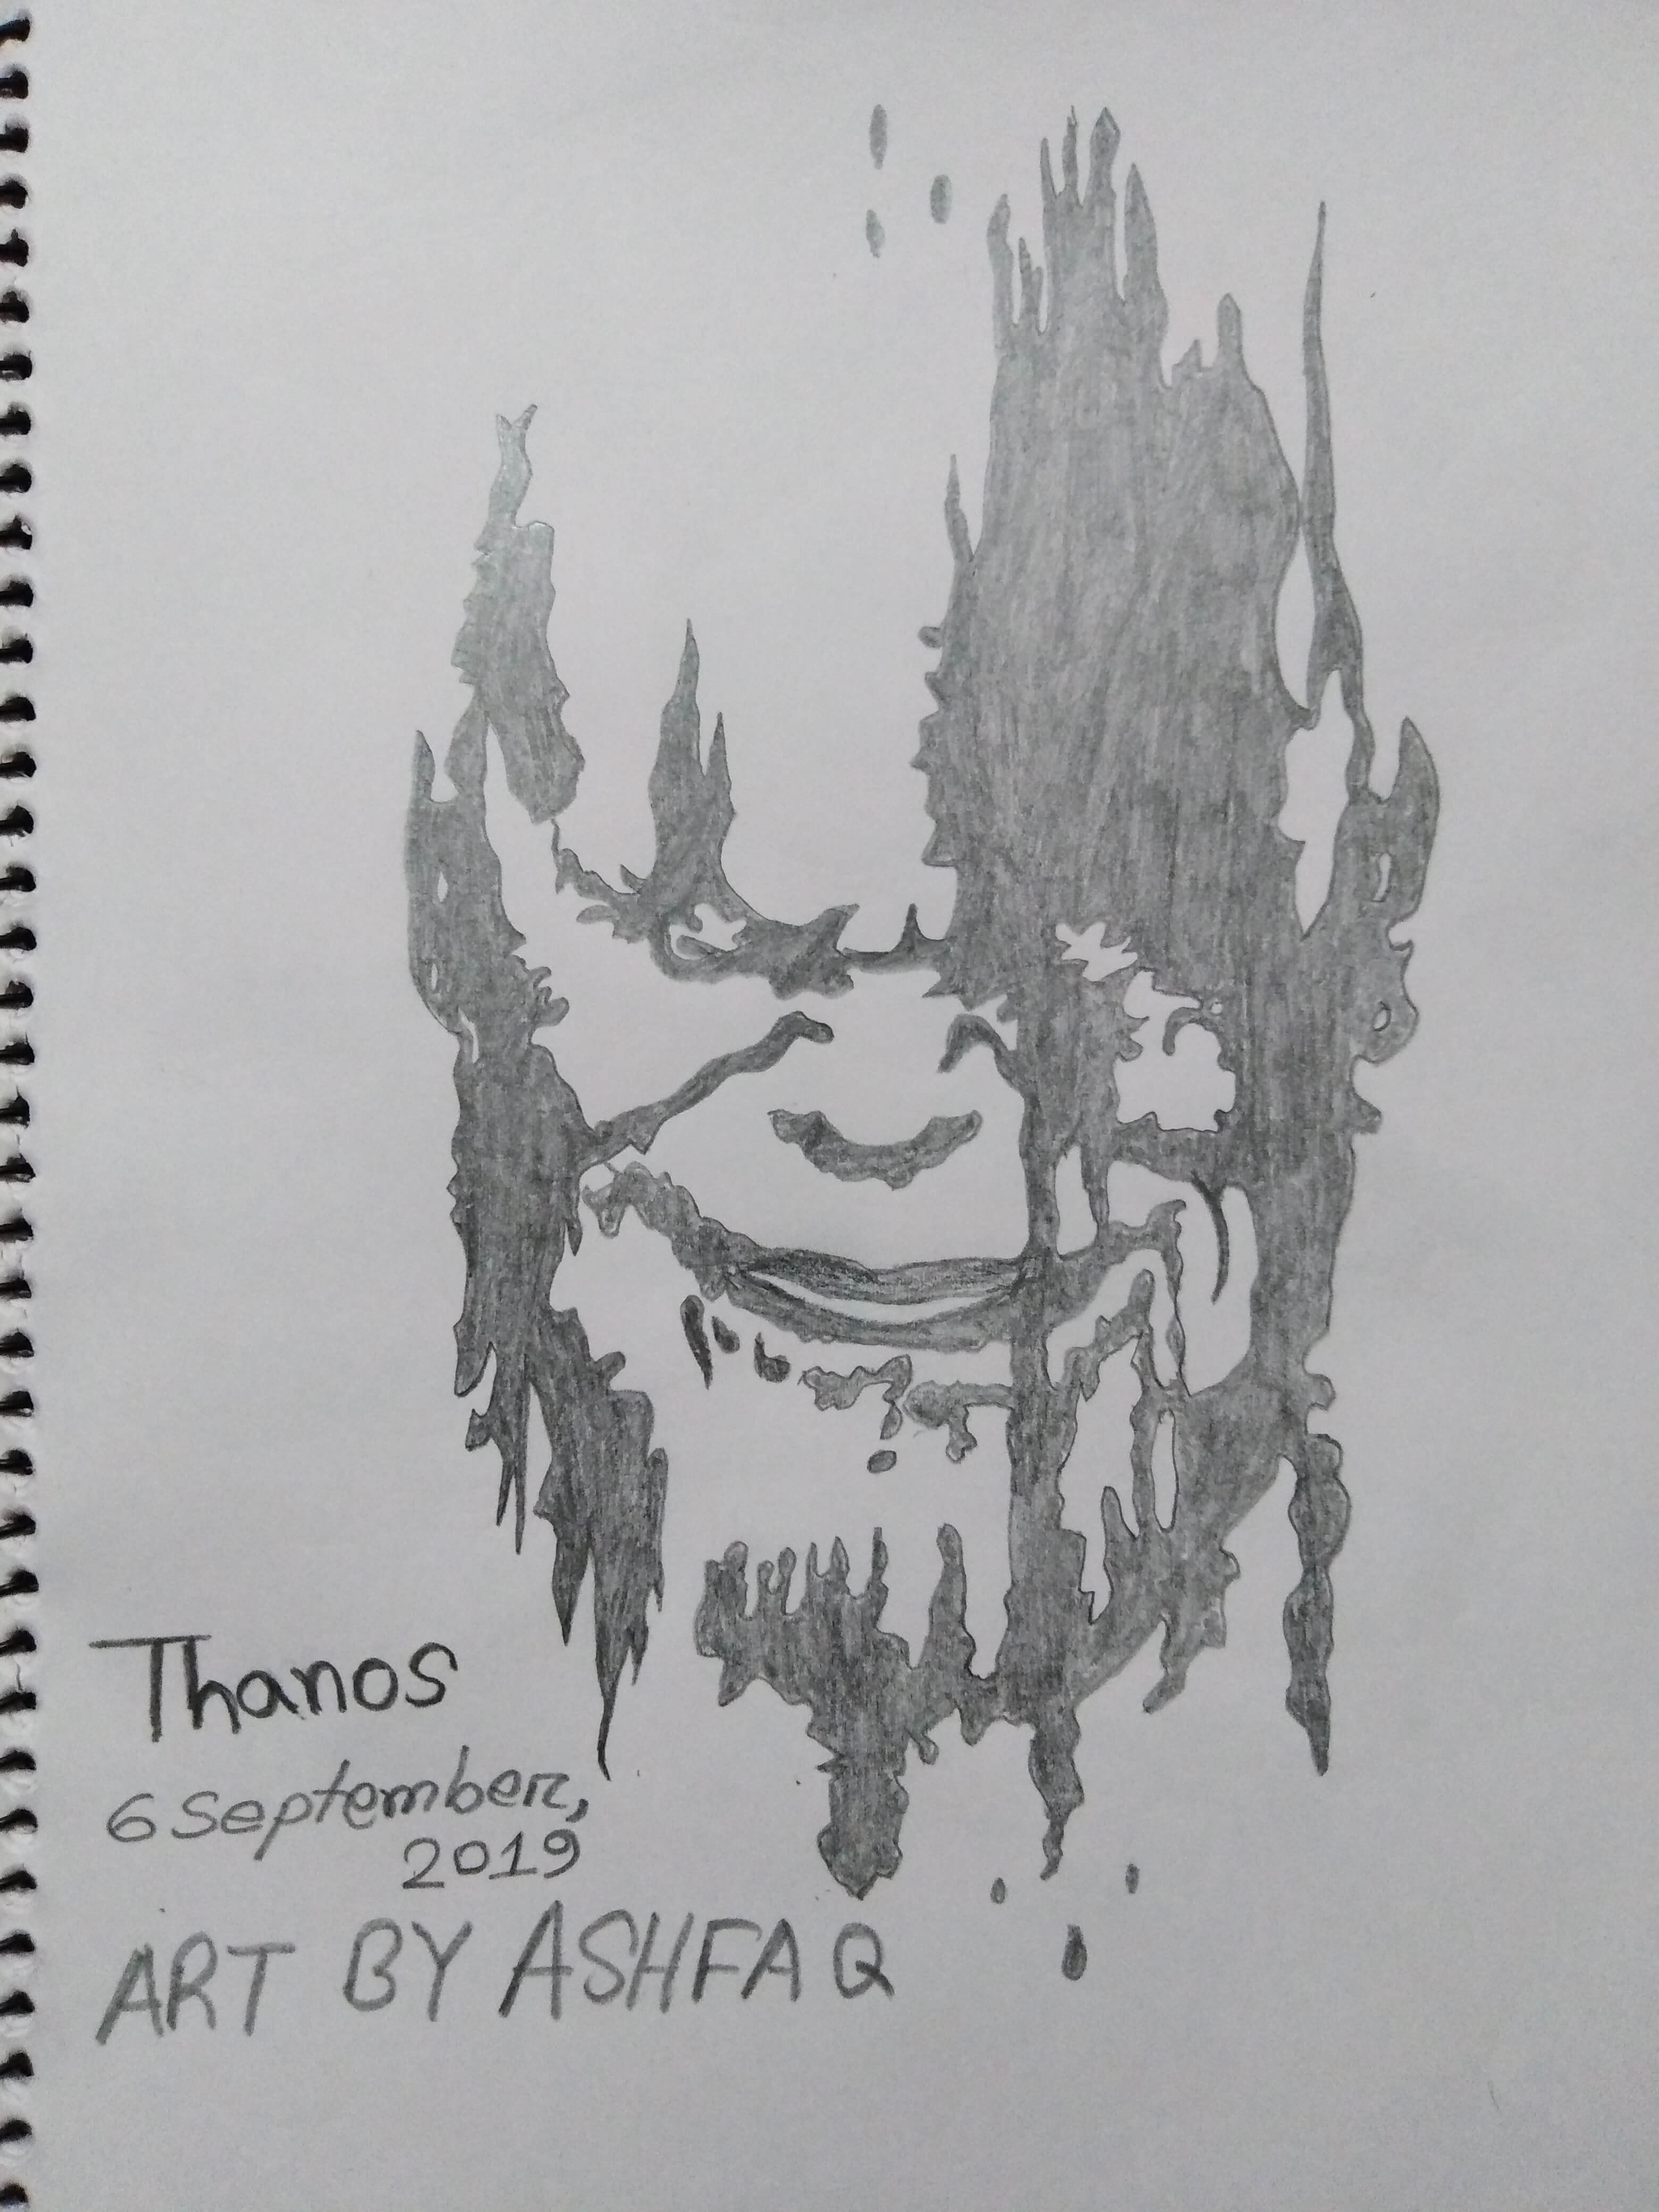 Thanos
6 September,
2019
ART BY ASHFAQ